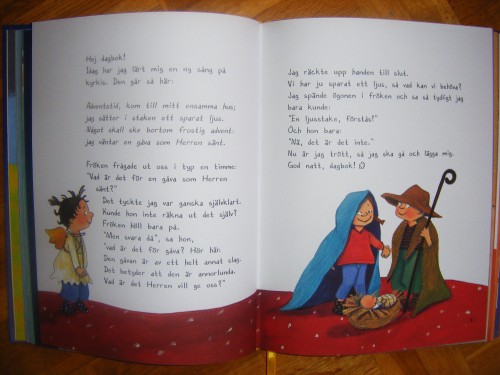 Hej dagbok!
Idag har jag lärt mig en ny sång på
kyrkis. Den går så här:
Adventstid, kom till mitt ensamma hus;
jag sätter i staken ett sparat ljus.
Något skall ske bortom frostig advent:
jag väntar en gåva som Herren sänt.
Fröken frågade ut oss i typ en timme:
"Vad är det för en gåva som Herren
sänt?"
Det tyckte jag var ganska självklart.
Kunde hon inte räkna ut det själv?
Fröken höll bara på.
"Men svara då", sa hon,
"vad är det för gåva? Hör här:
Den gåvan är av ett helt annat slag.
Det betyder att den är annorlunda.
Vad är det Herren vill ge oss?"
Jag räckte upp handen till slut.
Vi har ju sparat ett ljus, så vad kan vi behöva?
Jag spände ögonen i fröken och sa så tydligt jag
bara kunde:
"En ljusstake, förstås!"
Och hon bara:
"Nä, det är det inte."
Nu är jag trött, så jag ska gå och lägga mig.
God natt, dagbok!